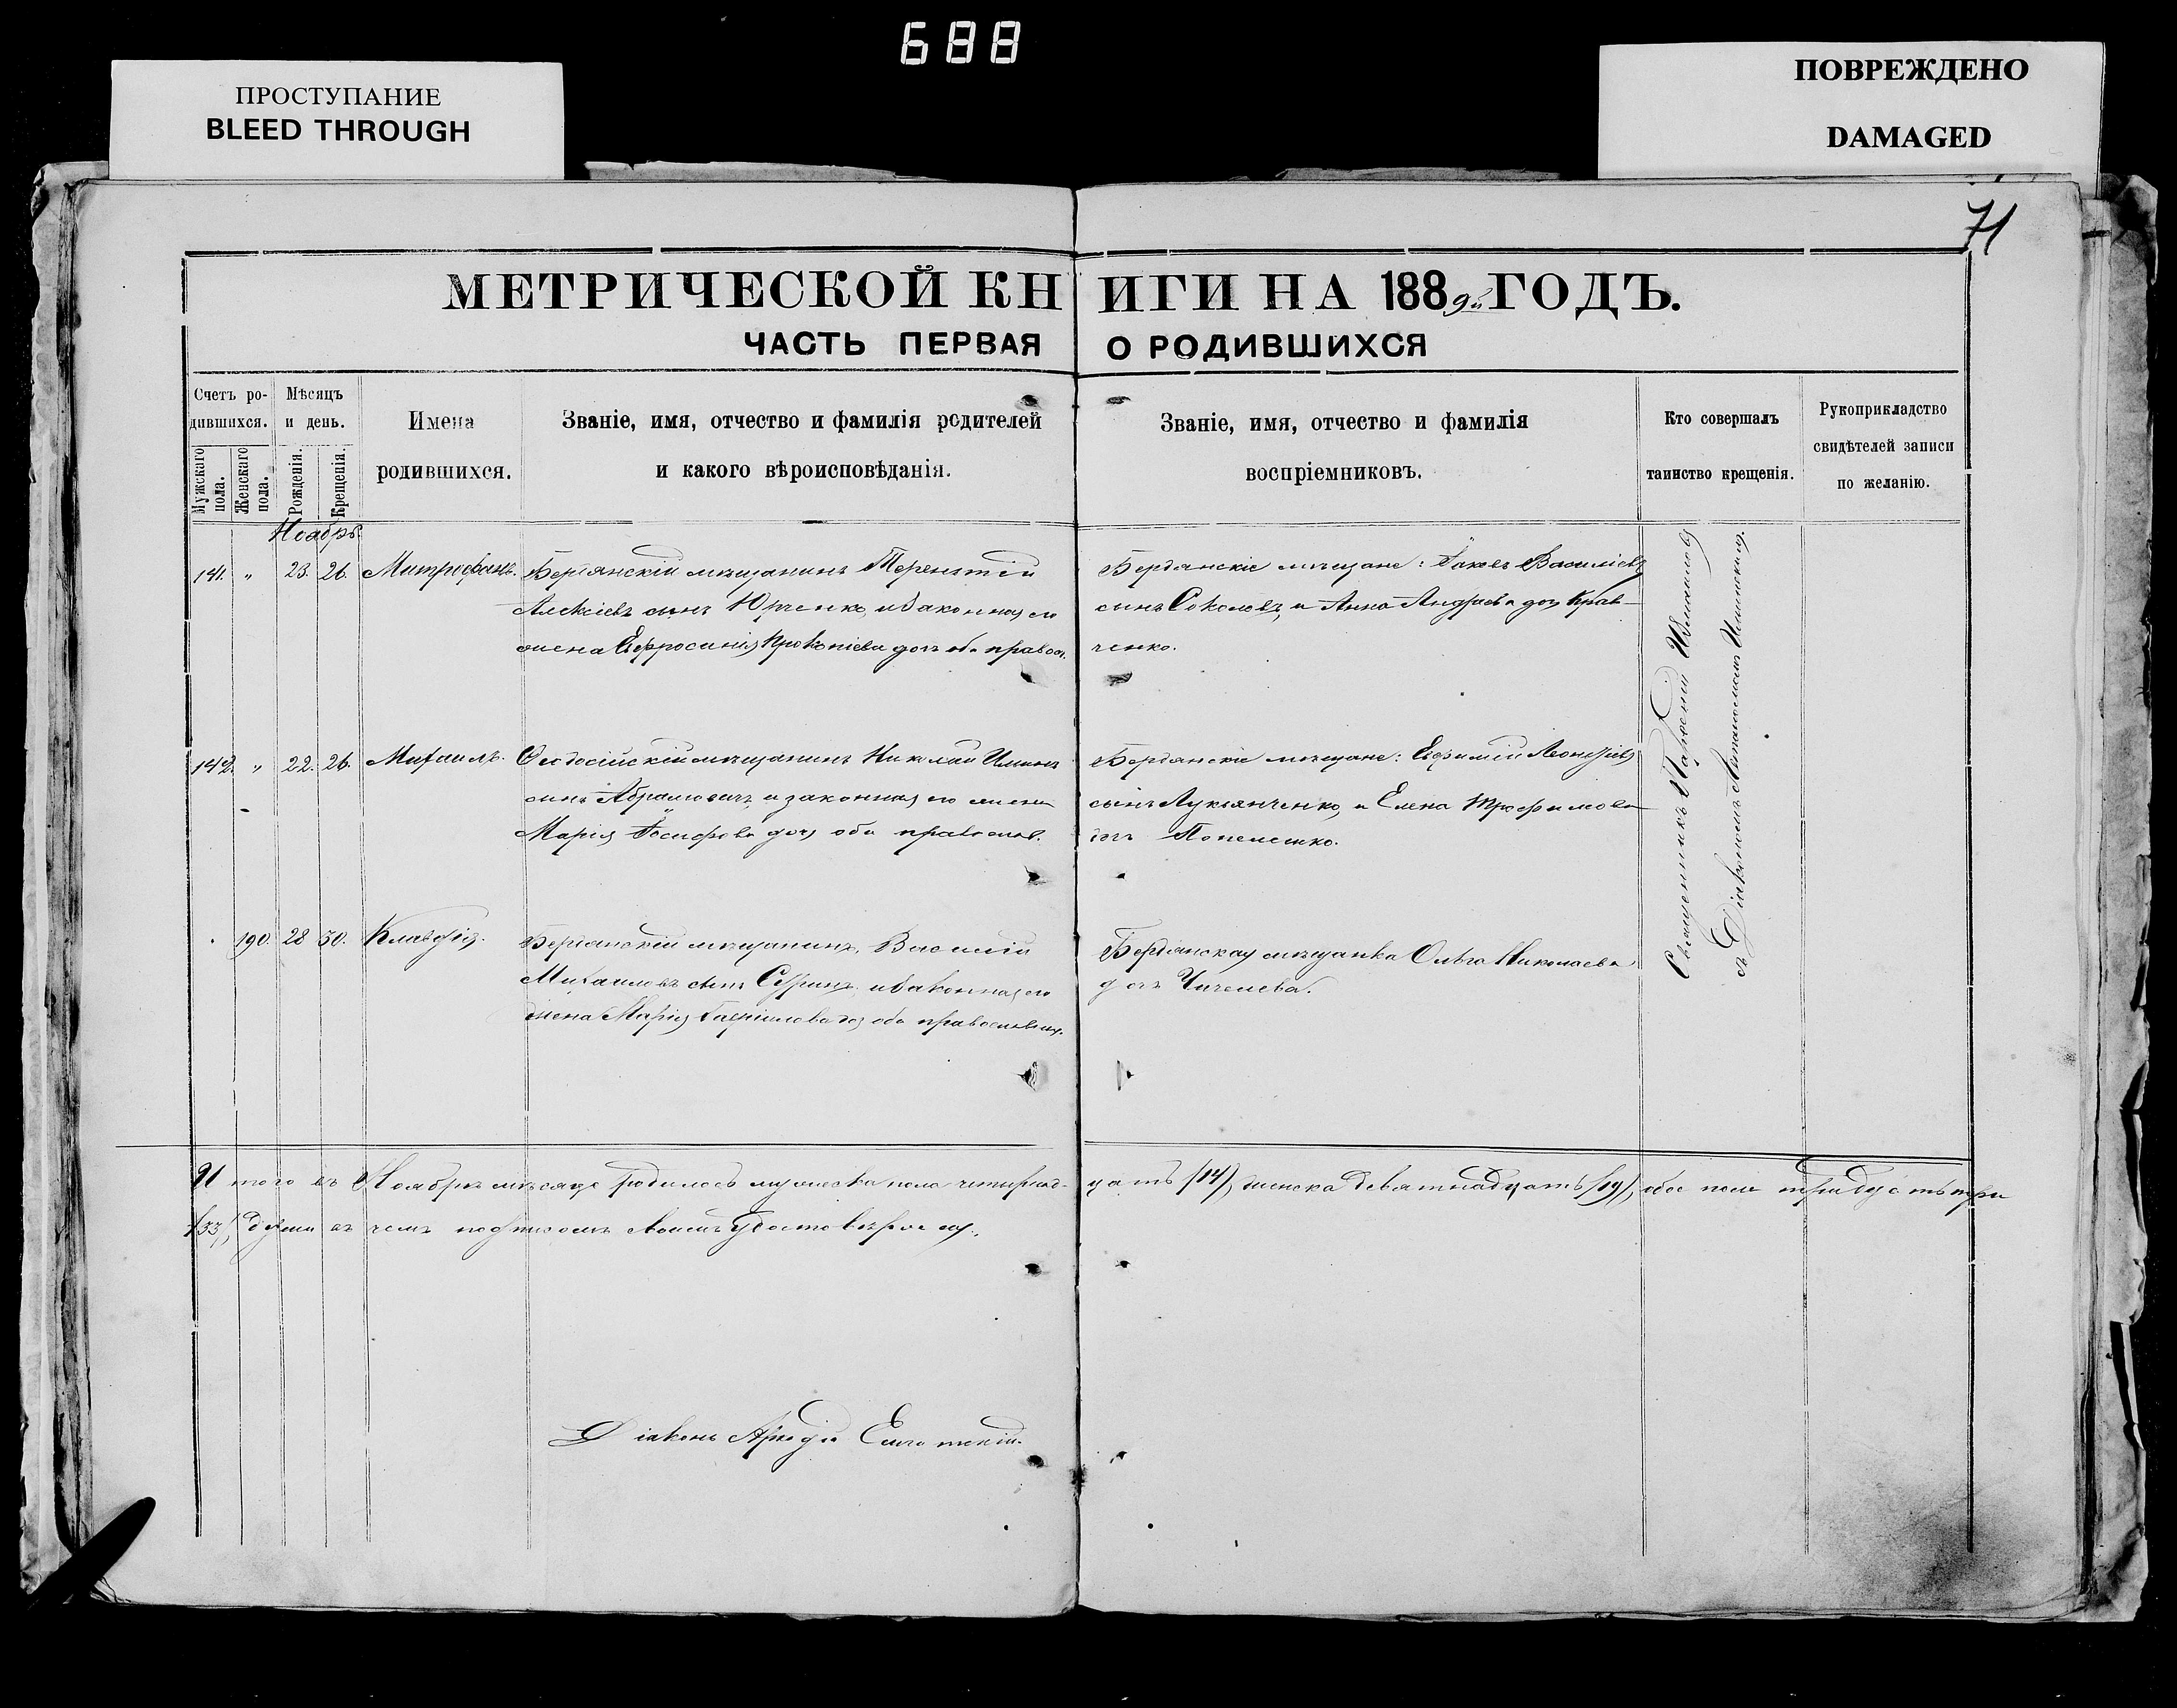 688
ПРОСТУПАНИЕ
BLEED THROUGH
ПОВРЕЖДЕНО
DAMAGED
71
МЕТРИЧЕСКОЙ КНИГИ НА 1889й ГОДЪ.
ЧАСТЬ ПЕРВАЯ О РОДИВШИХСЯ
Счетъ ро-
дившихся.
Мужскаго пола.
Женскаго пола.
Мѣсяцъ
и день.
Рожденія.
Крещенія.
Имена
родившихся.
Званіе, имя, отчество и фамилія родителей
и какого вѣроисповѣданія.
Званіе, имя, отчество и фамилія
воспріемниковъ.
Кто совершалъ
таинство крещенія.
Рукоприкладство
свидѣтелей записи
по желанію.
Ноябрь
141. " 23. 26. Митрофанъ. Бердянскій мѣщанинъ Терентій
Алексіевъ сынъ Юрченко, и законная его
жена Евфросинія Прокопіева дочь оба правос.
Бердянскіе мѣщане: Іаковъ Василіевъ
сынъ Соколовъ, и Анна Андреева доч Крав-
ченко.
142. " 22. 26. Михаилъ. Ѳеодосійскій мѣщанинъ Николай
сынъ Абрамовичъ, и законная его жена
Марія Іосифова доч, оба православ.
Бердянскіе мѣщане: Евфимій
сынъ Лукьянченко, и Елена Трофимова
доч
190. 28 30. Клавдія. Бердянскій мѣщанинъ, Василій
Михаиловъ сынъ и законная его
жена Марія Гавріилова доч оба православныя.
Бердянская мѣщанка Ольга Николаева
доч
Священникъ Парѳеній
съ Діакономъ
Итого въ Ноябрѣ мѣсяце родилось мужеска пола четырнад-
цать /14/, женска девятнадцать /19/, обое пола тридцать три
/33/, души въ чемъ подписомъ своимъ удостовѣряемъ.
Діаконъ